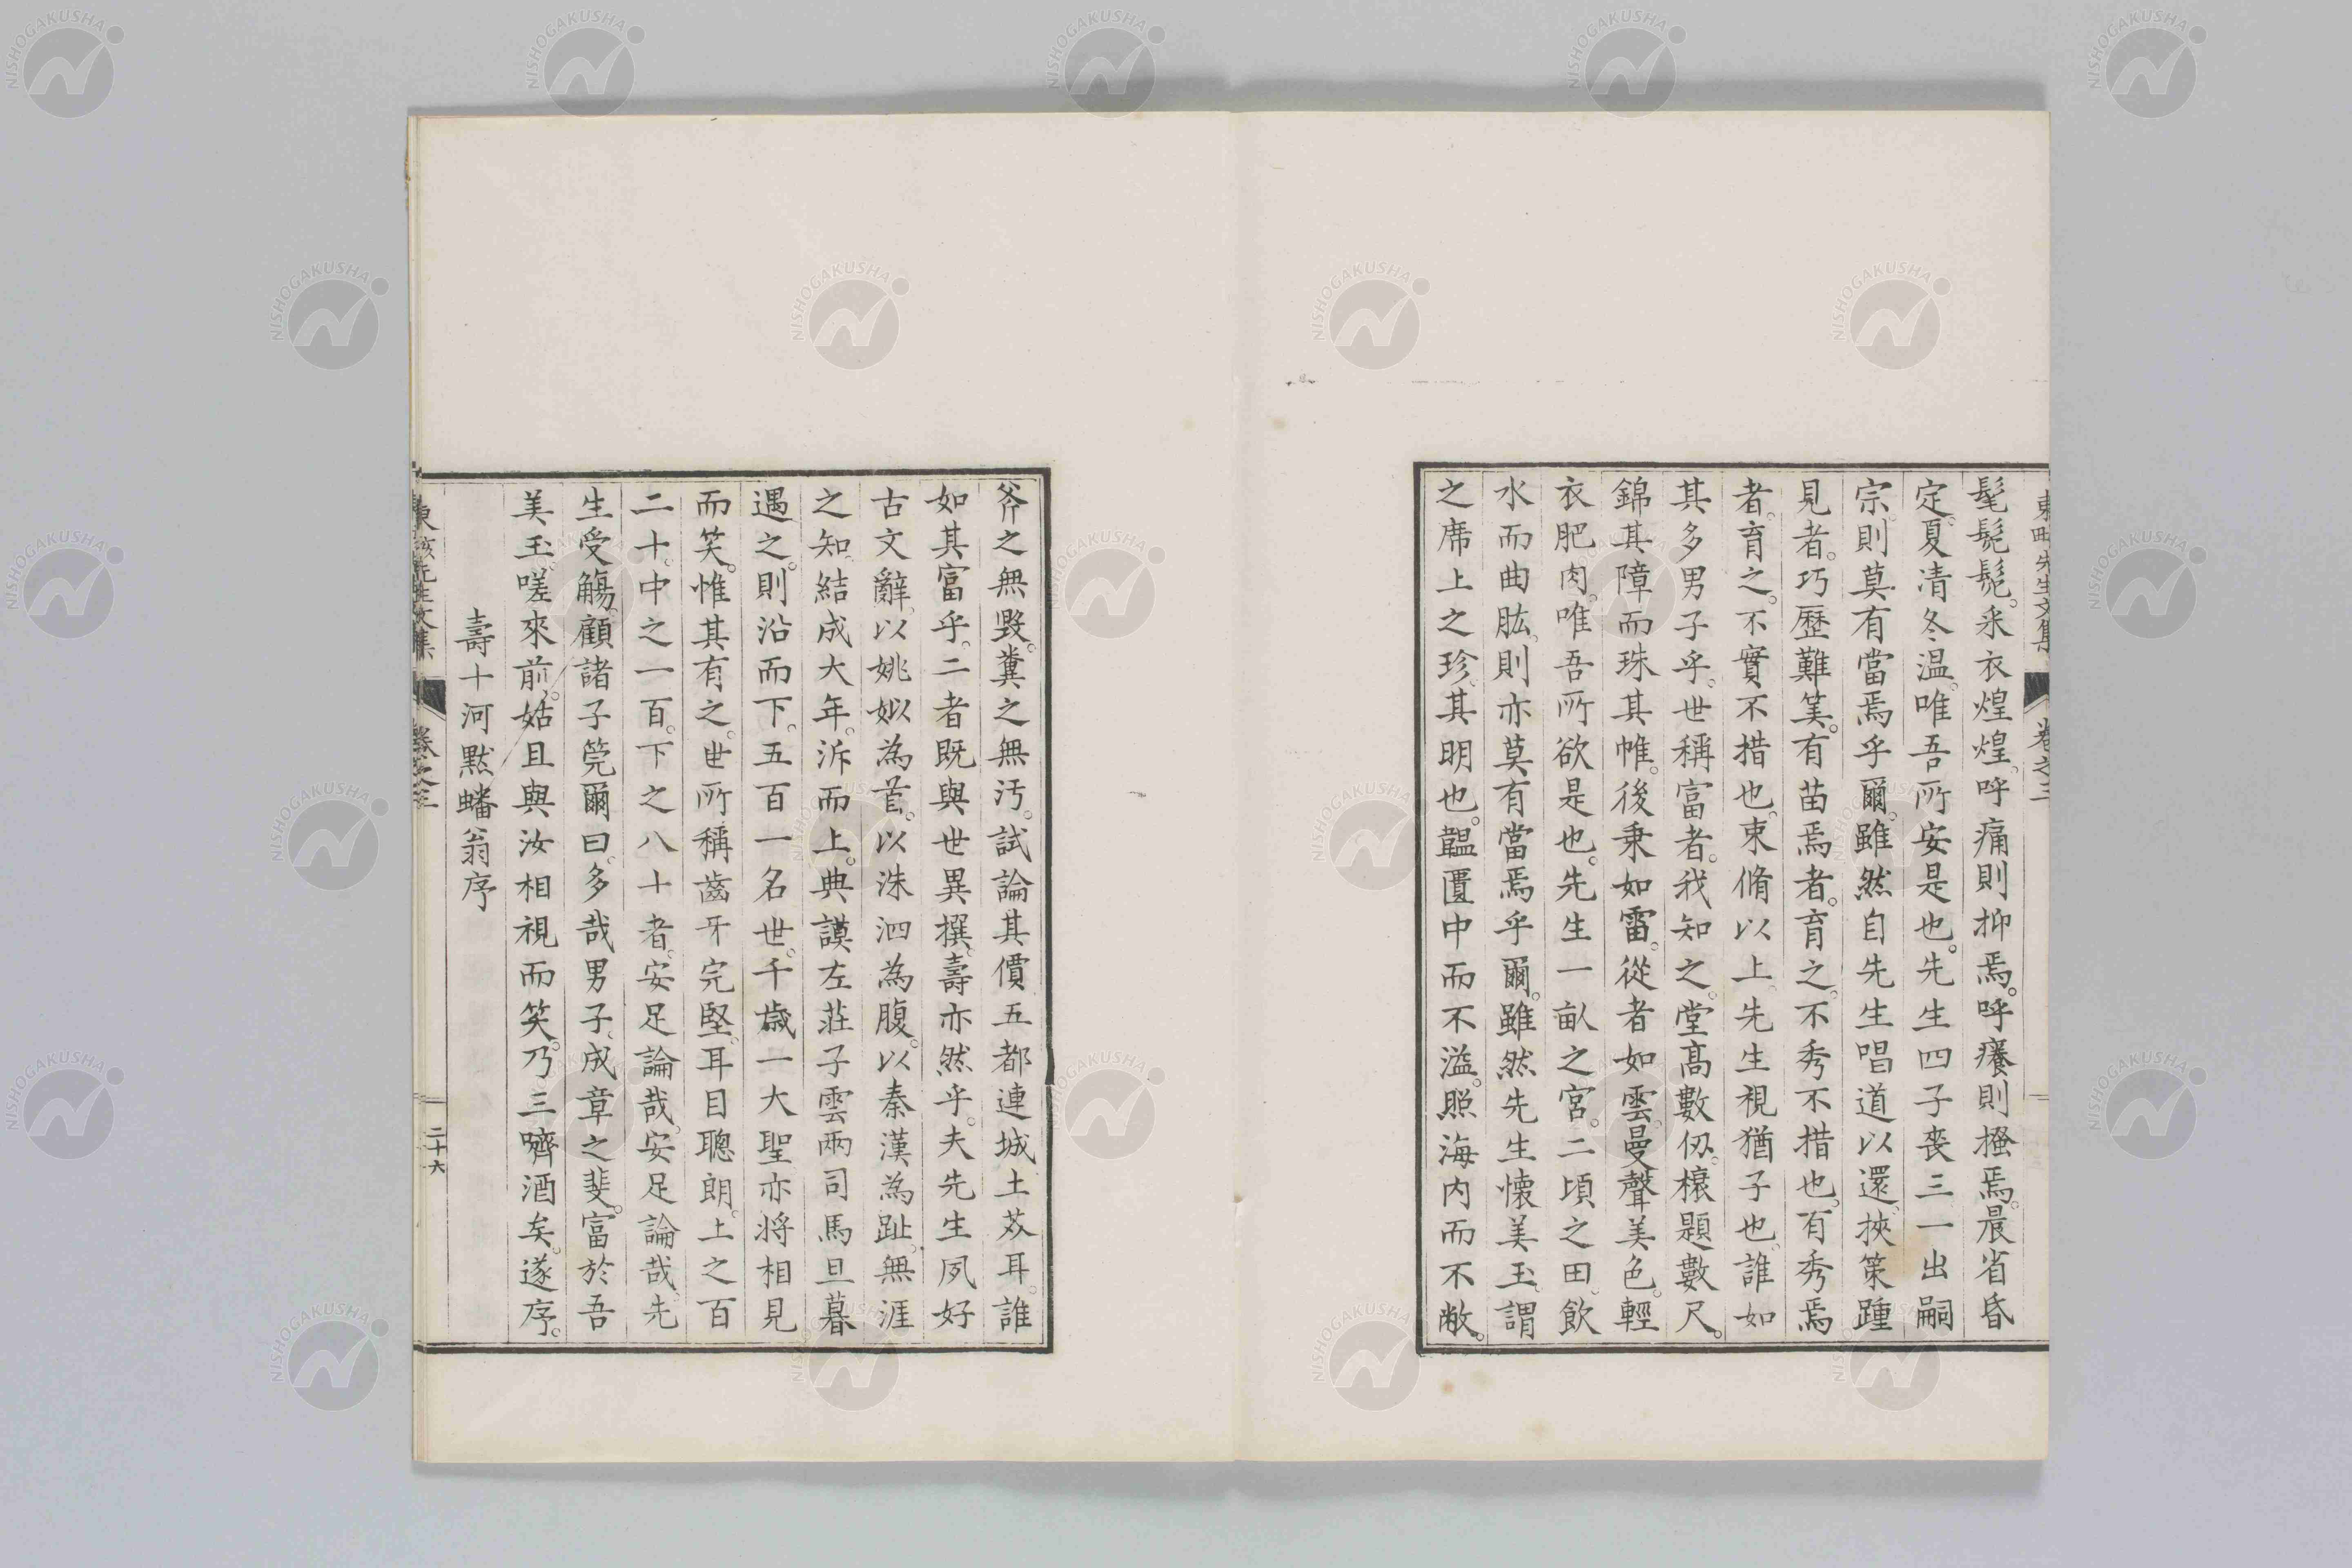 髦髧髧。采衣煌煌。呼痛則抑焉。呼癢則搔焉。晨省昏
定。夏凊冬温。唯吾所安是也。先生四子喪三一出嗣
宗。則莫有當焉乎爾。雖然自先生唱道以還。挾策踵
見者。巧歷難筭。有苗焉者。育之。不秀不措也。有秀焉
者。育之。不實不措也。束脩以上。先生視猶子也。誰如
其多男子乎。世稱富者。我知之。堂高數仭。榱題數尺。
錦其障而珠其帷。後秉如雷。從者如雲。曼聲美色。輕
衣肥肉。唯吾所欲是也。先生一畝之宮。二頃之田。飲
水而曲肱。則亦莫有當焉乎爾。雖然先生懷美玉。謂
之席上之珍。其明也。韞匵中而不溢。照海内而不敝。
斧之無毀。糞之無汚。試論其價五都連城土芥耳。誰
如其富乎。二者既與世異撰。壽亦然乎。夫先生夙好
古文辭。以姚姒為首。以洙泗為腹。以秦漢為趾。無涯
之知。結成大年。泝而上。典謨左莊子雲兩司馬旦暮
遇之。則沿而下。五百一名世。千歲一大聖亦將相見
而笑。惟其有之。世所稱齒牙完堅。耳目聰朗。上之百
二十。中之一百。下之八十者。安足論哉。安足論哉。先
生受觴。顧諸子莞爾曰。多哉男子。成章之斐。富於吾
美玉。嗟來前。姑且與汝相視而笑。乃三嚌酒矣。遂序。
壽十河黙蟠翁序
二十六
NISHOGAKUSHA